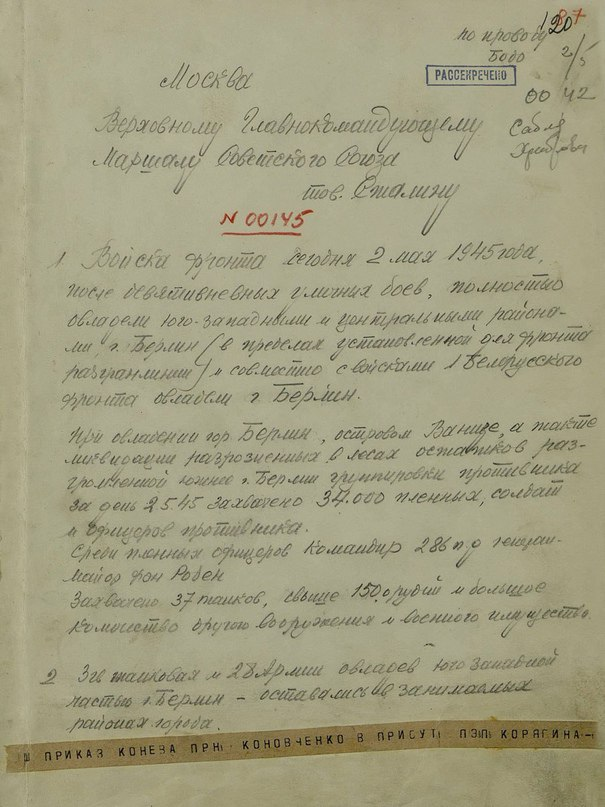 120
87
по проводу
Бодо
2/5
РАССЕКРЕЧЕНО
00 42
Москва
Верховному Главнокомандующему
Маршалу Советского Союза
тов. Сталину
N 00145
1 Войска фронта сегодня 2 мая 1945 года,
после девятивневных уличных боев, полностью
овладели юго-западными и центральными района-
ми, г. Берлин (в пределах установленной для фронта
разгранлинии) и совместно с войсками 1 Белорусского
фронта овладели г. Берлин.
При овладении гор Берлин, островом Ванзее, а также
ликвидации разрозненных в лесах остатков раз-
громленной южнее г. Берлин группировки противника
за день 2.5.45 захвачено 34.000 пленных, солдат
и офицеров противника.
Среди пленных офицеров командир 286 п.д генерал-
майор фон Роден
Захвачено 37 танков, свыше 150 орудий и большое
количество другого вооружения и военного имущества.
2 3 гв танковая и 28 Армии овладев юго западной
частью г. Берлин – оставались в занимаемых
районах города.
Ш ПРИКАЗ КОНЕВА ПРН КОНОВЧЕНКО В ПРИСУТ ПЗП КОРЯГИНА-